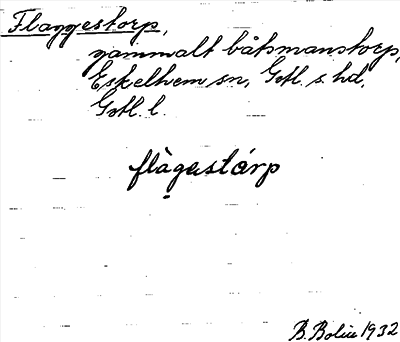 Flaggestorp,
gammalt båtsmanstorp,
Eskelhem sn, Gotl. s. hd,
Gotl. l.
flàgastárp
B. Bolin 1932